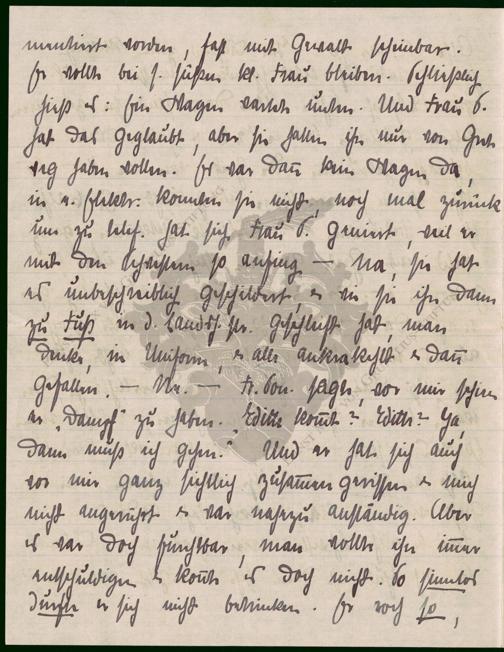 mentiert worden, fast mit Gewalt scheinbar.
Er wollte bei s. süßen kl. Frau bleiben. Schließlich
hieß es: Ein Wagen wartet unten. Und Frau G.
hat das geglaubt, aber sie hatten ihn nur von Gret
weg haben wollen. Er war dann kein Wagen da,
in u. Elektr. konnten sie nicht, noch mal zurück
um zu telef. hat sich Frau G. geniert, weil er
mit den Schwestern so anfing — Na, sie hat
es unbeschreiblich geschildert, wie sie ihn dann
zu Fuß in d. Landsf. str. geschleift hat, man
denke, in Uniform, alle ankrakehlt dann
gefallen. — Na. — Fr. Gou. sagte, vor mir schien
er „Dampf" zu haben. „Edith kommt? Edith? Ja,
dann muß ich gehen." Und er hat sich auch
vor mir ganz sichtlich zusammen gerissen mich
nicht angerührt war nahezu anständig. Aber
es war doch furchtbar, man wollte ihn immer
entschuldigen konnte es doch nicht. So sinnlos
durfte er sich nicht betrinken. Er roch so,